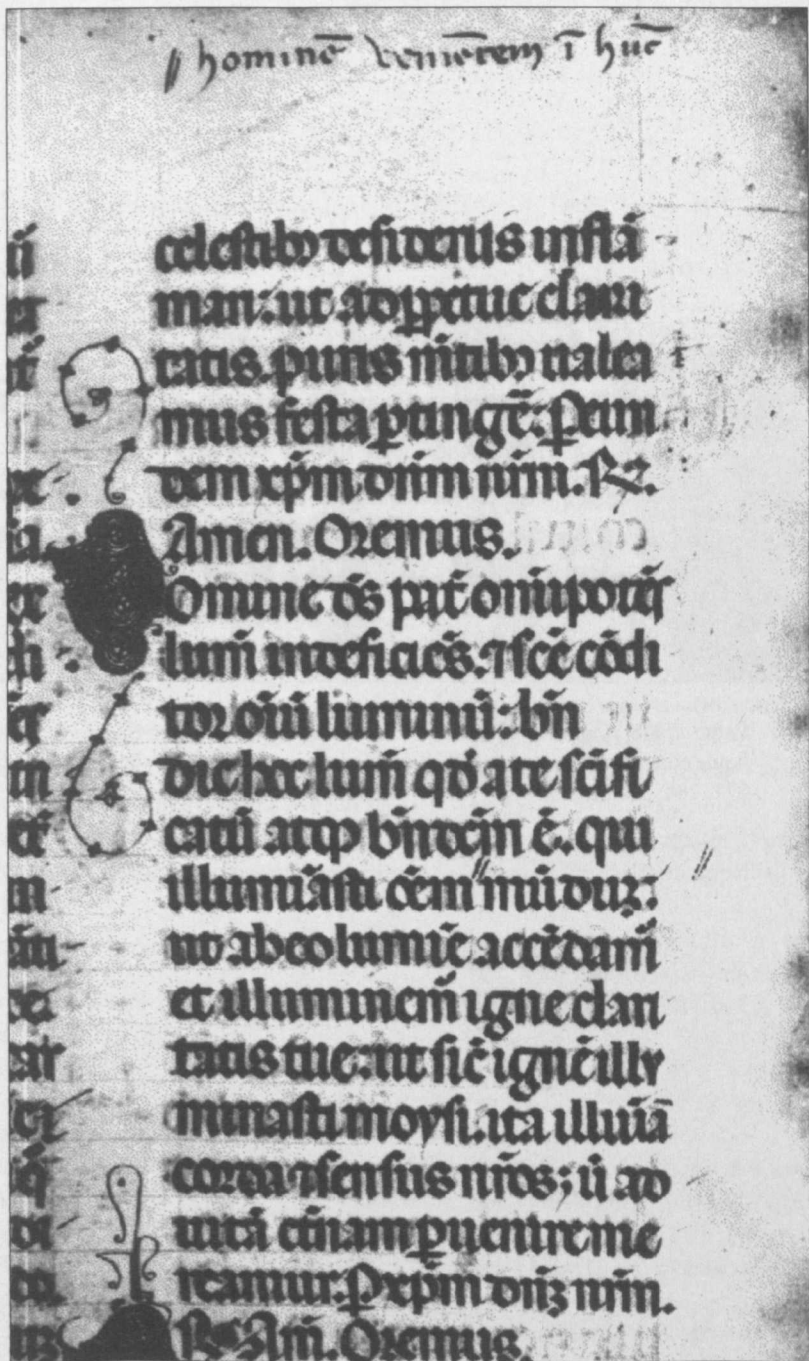 hominē veniētem ī hūc
celestibꝰ desideriis inflā
mari: ut ad ꝑpetue clari
tatis. puris mētibꝰ ualea
mus festa ꝑtingē: Ꝑ eun
dem xp̄m dn̄m nr̄m. ℟.
Amen. Oremus.
Domine ds̄ pat̄ om̄ipotēs
lum̄ indeficiēs. ⁊ scē cōdi
tor oīū luminū: bn̄
dic hec lum̄ qd̄ a te scīfi
catū atqꝫ bn̄dcm̄ ē. qui
illumīasti oēm mūduꝫ:
ut ab eo lumīe accēdam̄
et illuminem̄ igne clari
tatis tue: ut sic̄ ignē illu
minasti moysi. ita illuīa
corda ⁊ sensus nr̄os; ū ad
uitā et̄nam ꝑuenire me
reamur. Ꝑ xp̄m dn̄ꝫ nr̄m.
℟ Am̄. Oremus.